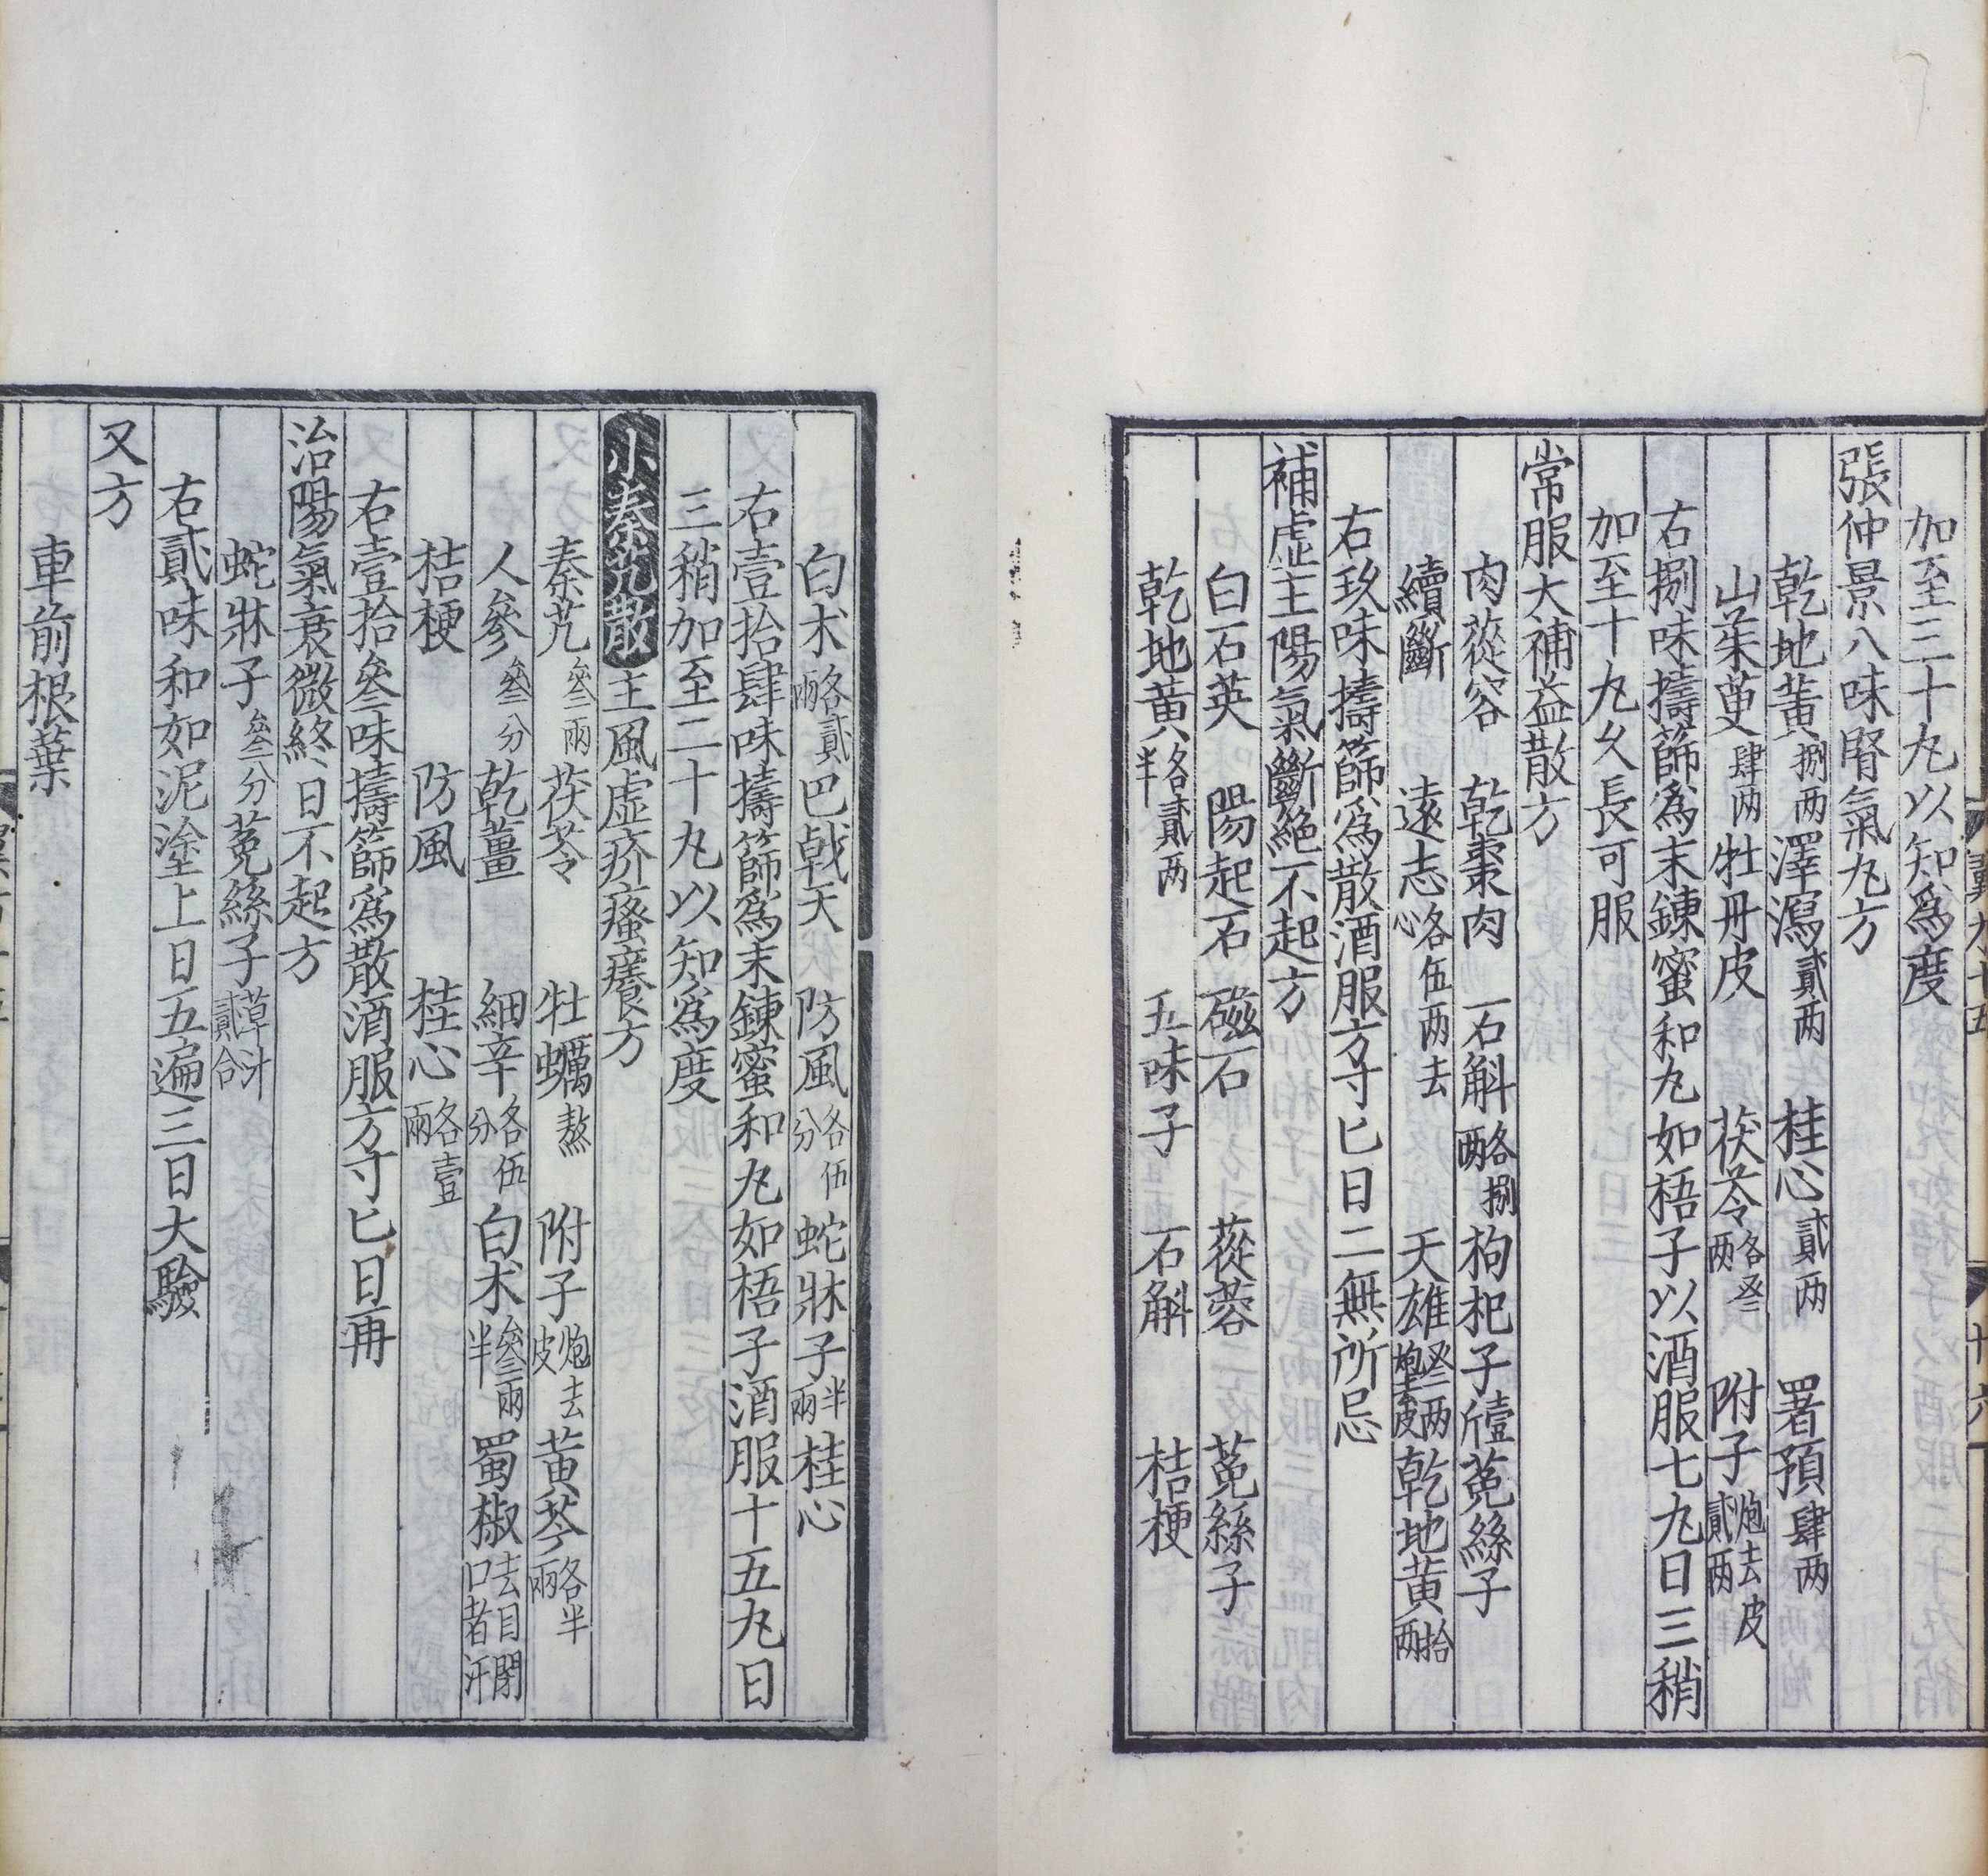 加至三十丸以知爲度
張仲景八味腎氣丸方
乾地黄捌两澤瀉貳两桂心貳两署預肆两
山茱萸肆两牡丹皮茯苓各叄两附子炮去皮貳两
右捌味擣篩爲末鍊蜜和丸如梧子以酒服七丸日三稍
加至十丸久長可服
常服大補益散方
肉蓯容乾棗肉一石斛各捌两枸杞子壹斤菟絲子
續斷遠志各伍两去心天雄叄两炮去皮乾地黄拾两
右玖味擣篩爲散酒服方寸匕日二無所忌
補虛主陽氣斷絶不起方
白石英陽起石磁石蓯蓉菟絲子
乾地黄各貳两半五味子石斛桔梗
白朮各貳兩巴戟天防風各伍分蛇牀子半兩桂心
右壹拾肆味擣篩爲末鍊蜜和丸如梧子酒服十五丸日
三稍加至二十丸以知爲度
小秦艽散主風虛疥瘙癢方
秦艽叄兩茯苓牡蠣熬附子炮去皮黄芩各半兩
人參叄分乾薑細辛各伍分白朮叄兩半蜀椒去目閉口者汗
桔梗防風桂心各壹兩
右壹拾叄味擣篩爲散酒服方寸匕日再
治陽氣衰微終日不起方
蛇牀子叄分菟絲子草汁貳合
右貳味和如泥塗上日五遍三日大驗
又方
車前根葉